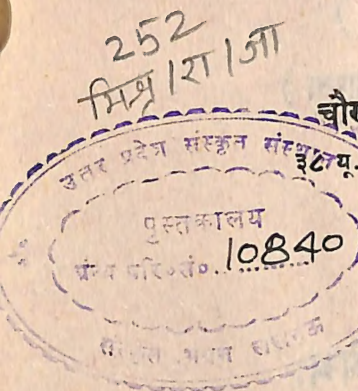 252
मिश्र/रा/जा
चौख
उत्तर प्रदेश संस्कृत संस्थान
३८ यू.
पुस्तकालय
ग्रन्थ परि०सं० 10840